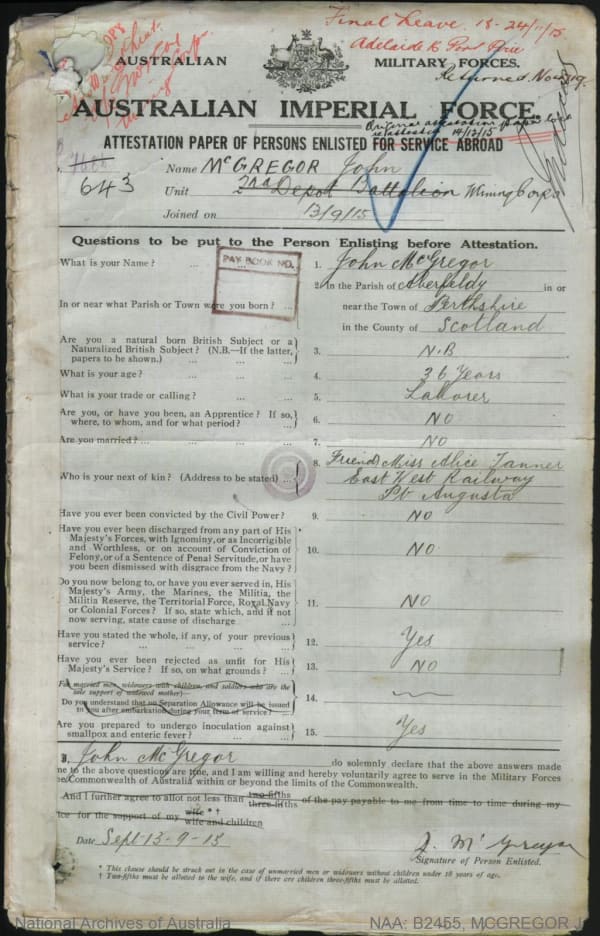 Final Leave. 18-24/11/15
Adelaide to Port Pirie
AUSTRALIAN MILITARY FORCES.
Returned Nov
AUSTRALIAN IMPERIAL FORCE
Original attestation paper lost
re attested 14/12/15
ATTESTATION PAPER OF PERSONS ENLISTED FOR SERVICE ABROAD
643 Name McGREGOR John
Unit 2nd Depot Battalion Mining Corps
Joined on 13/9/15
Questions to be put to the Person Enlisting before Attestation.
PAY BOOK NO.
What is your Name? ... ... 1. John McGregor
In or near what Parish or Town were you born? ... 2. In the Parish of Aberfaldy in or
near the Town of Perthshire
in the County of Scotland
Are you a natural born British Subject or a
Naturalized British Subject? (N.B.—If the latter,
papers to be shown.) ... ... ... 3. N.B
What is your age? ... ... ... 4. 36 Years
What is your trade or calling? ... ... 5. Laborer
Are you, or have you been, an Apprentice? If so,
where, to whom, and for what period? ... 6. No
Are you married? ... ... ... ... 7. No
Who is your next of kin? (Address to be stated) ... 8. Friend Miss Alice Tanner
East West Railway
Pt Augusta
Have you ever been convicted by the Civil Power? 9. No
Have you ever been discharged from any part of His
Majesty's Forces, with Ignominy, or as Incorrigible
and Worthless, or on account of Conviction of
Felony, or of a Sentence of Penal Servitude, or have
you been dismissed with disgrace from the Navy? 10. No.
Do you now belong to, or have you ever served in, His
Majesty's Army, the Marines, the Militia, the
Militia Reserve, the Territorial Force, Royal Navy
or Colonial Forces? If so, state which, and if not
now serving, state cause of discharge 11. No
Have you stated the whole, if any, of your previous
service? ... ... ... ... 12. Yes
Have you ever been rejected as unfit for His
Majesty's Service? If so, on what grounds? ... 13. No
For married men, widowers with children, and soldiers who are the
sole support of widowed mother)
Do you understand that no Separation Allowance will be issued
to you after embarkation during your term of service? 14.
Are you prepared to undergo inoculation against
smallpox and enteric fever? ... ... 15. Yes
I, John McGregor do solemnly declare that the above answers made
me to the above questions are true, and I am willing and hereby voluntarily agree to serve in the Military Forces
the Commonwealth of Australia within or beyond the limits of the Commonwealth.
And I further agree to allot not less than two-fifths three-fifths of the pay payable to me from time to time during my
for the support of my wife * † wife and children
Date Sept 13-9-15 J. McGregor
Signature of Person Enlisted.
* This clause should be struck out in the case of unmarried men or widowers without children under 18 years of age.
† Two-fifths must be allotted to the wife, and if there are children three-fifths must be allotted.
National Archives of Australia NAA: B2455, MCGREGOR J